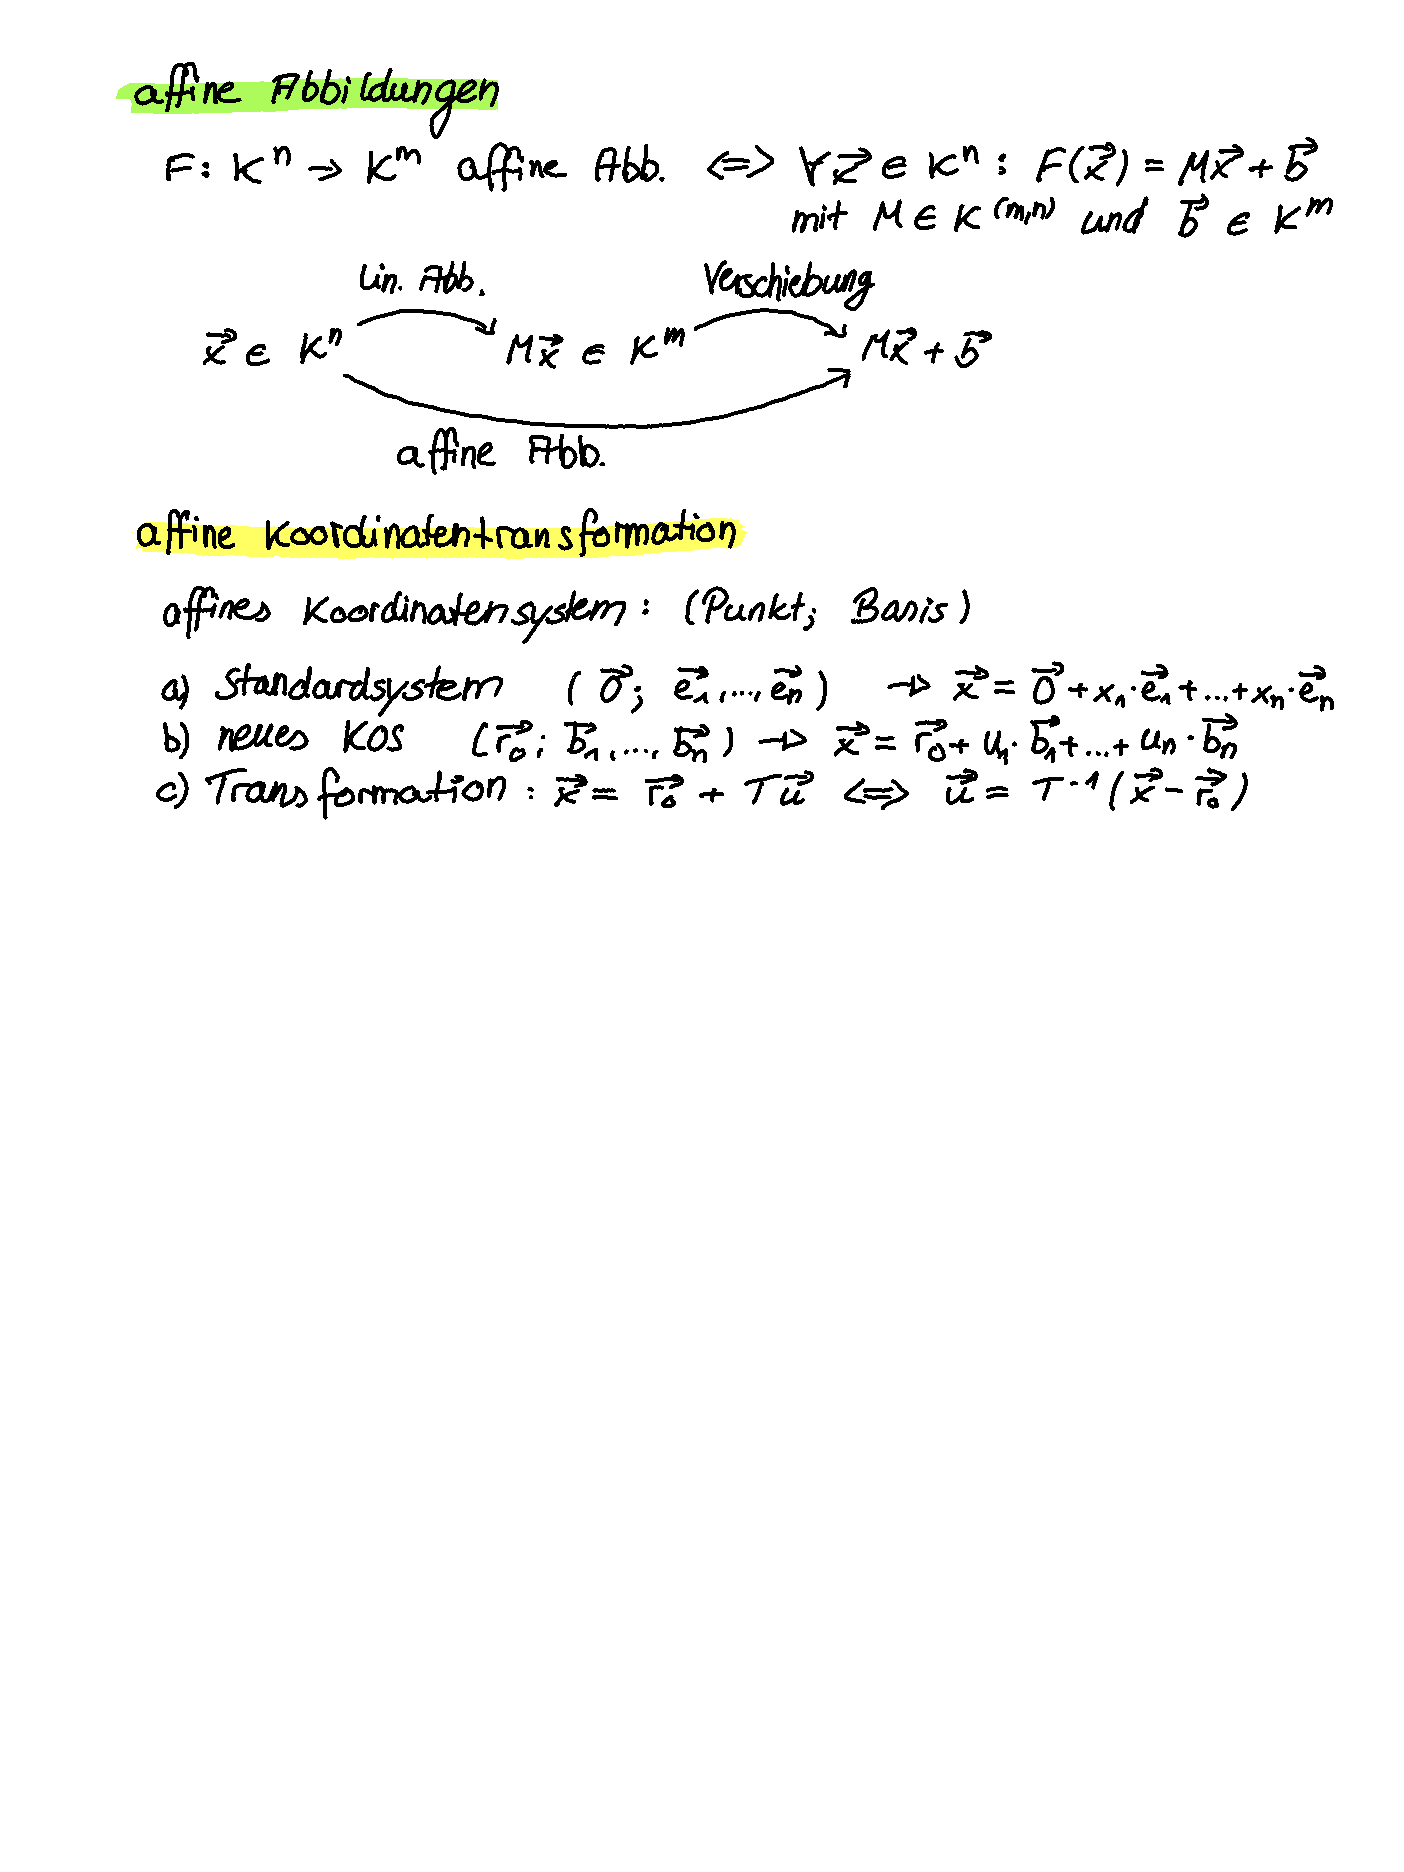 affine Abbildungen
F: Kⁿ → Kᵐ affine Abb. ⇔ ∀x⃗ ∈ Kⁿ : F(x⃗) = Mx⃗ + b⃗
mit M ∈ K^(m,n) und b⃗ ∈ Kᵐ
Lin. Abb. Verschiebung
x⃗ ∈ Kⁿ Mx⃗ ∈ Kᵐ Mx⃗ + b⃗
affine Abb.
affine Koordinatentransformation
affines Koordinatensystem : (Punkt; Basis)
a) Standardsystem (0⃗; e⃗₁,...,e⃗ₙ) → x⃗ = 0⃗ + x₁·e⃗₁ + ... + xₙ·e⃗ₙ
b) neues KOS (r⃗₀; b⃗₁,...,b⃗ₙ) → x⃗ = r⃗₀ + u₁·b⃗₁ + ... + uₙ·b⃗ₙ
c) Transformation : x⃗ = r⃗₀ + Tu⃗ ⇔ u⃗ = T⁻¹(x⃗ - r⃗₀)